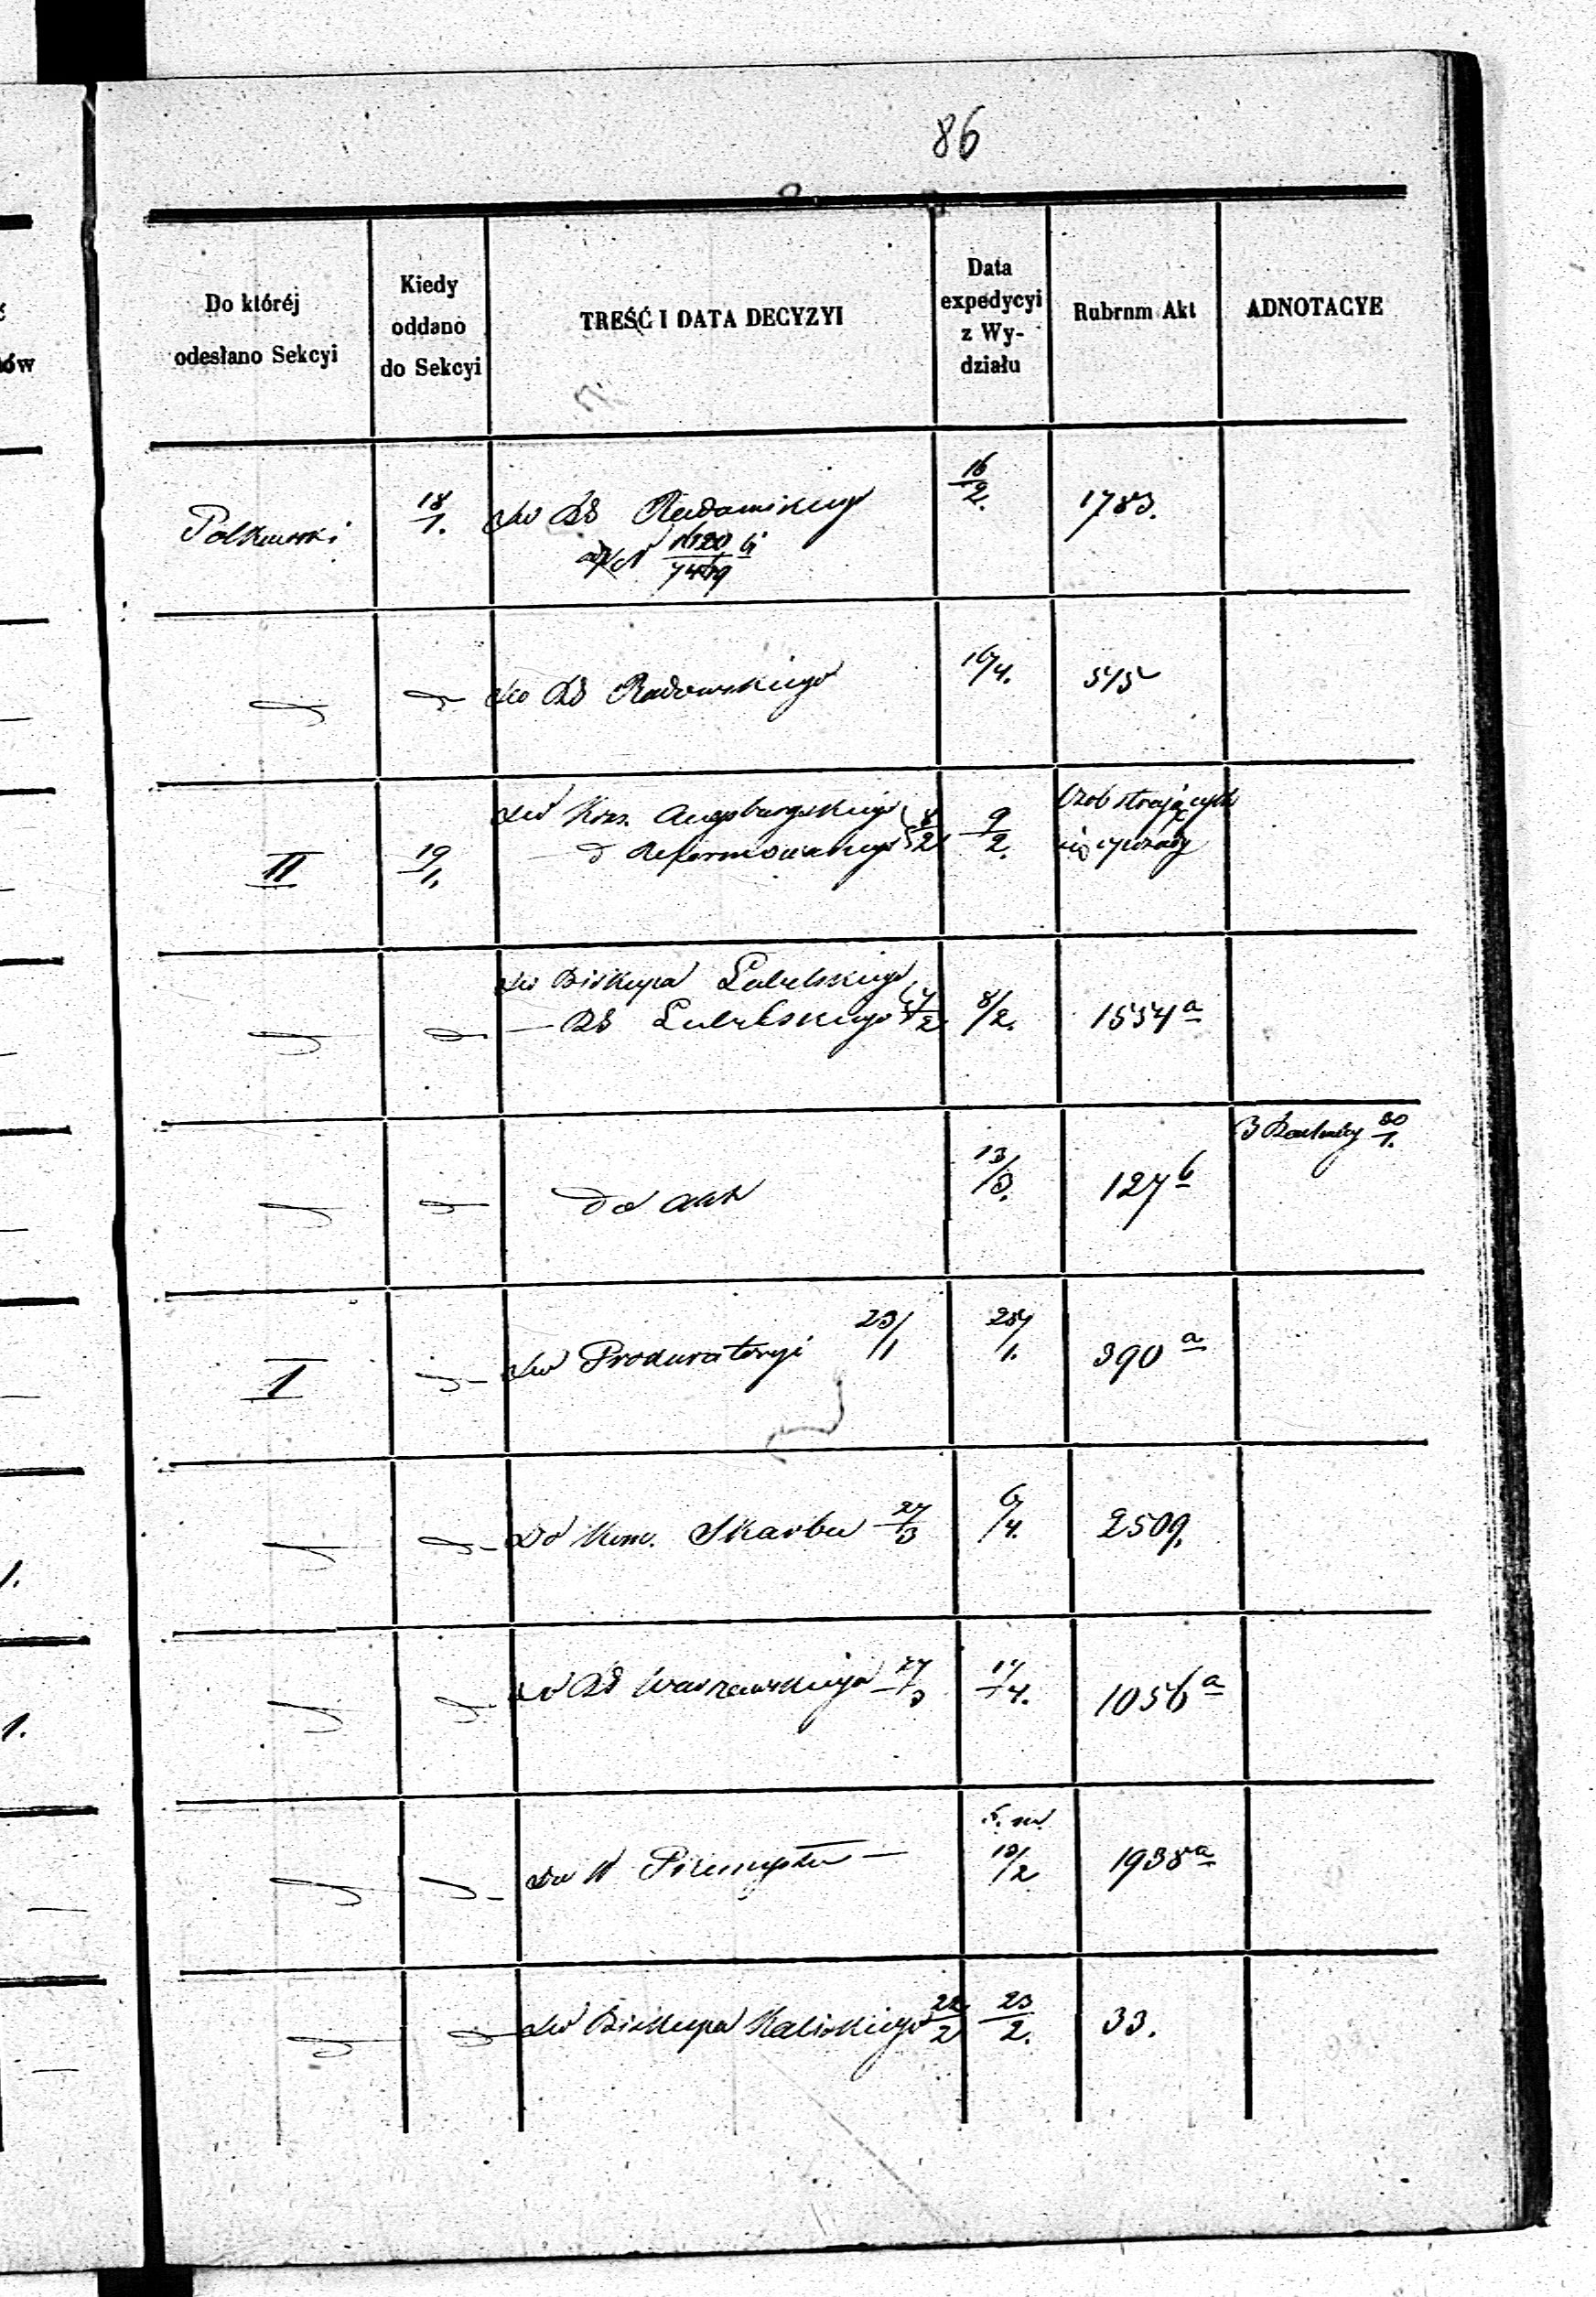 86
Do któréj
odesłano Sekcyi
Kiedy
oddano
do Sekcyi
TREŚĆ I DATA DECYZYI
Data
expedycyi
z Wy-
działu
Rubrum Akt
ADNOTACYE
ów
18/1. do RG Radomskiego 16/2. 1783.
do RG Radomskiego 16/4. 545
II 19/1. do Kons. Augsburgskiego
d Reformowanego 8/2 9/2.
do Biskupa Lubelskiego
— RG Lubelskiego 7/2 8/2. 1554 a
do akt 13/3. 127 b 30/1.
I do Prokuratoryi 23/1 24/1. 390 a
Do Kom. Skarbu 27/3 6/4. 2509.
do RG Warszawskiego 27/3 17/4. 1056 a
do W Przemysłu — 10/2 1938 a
do Biskupa Kaliskiego 22/2 23/2. 33.
1.
1.